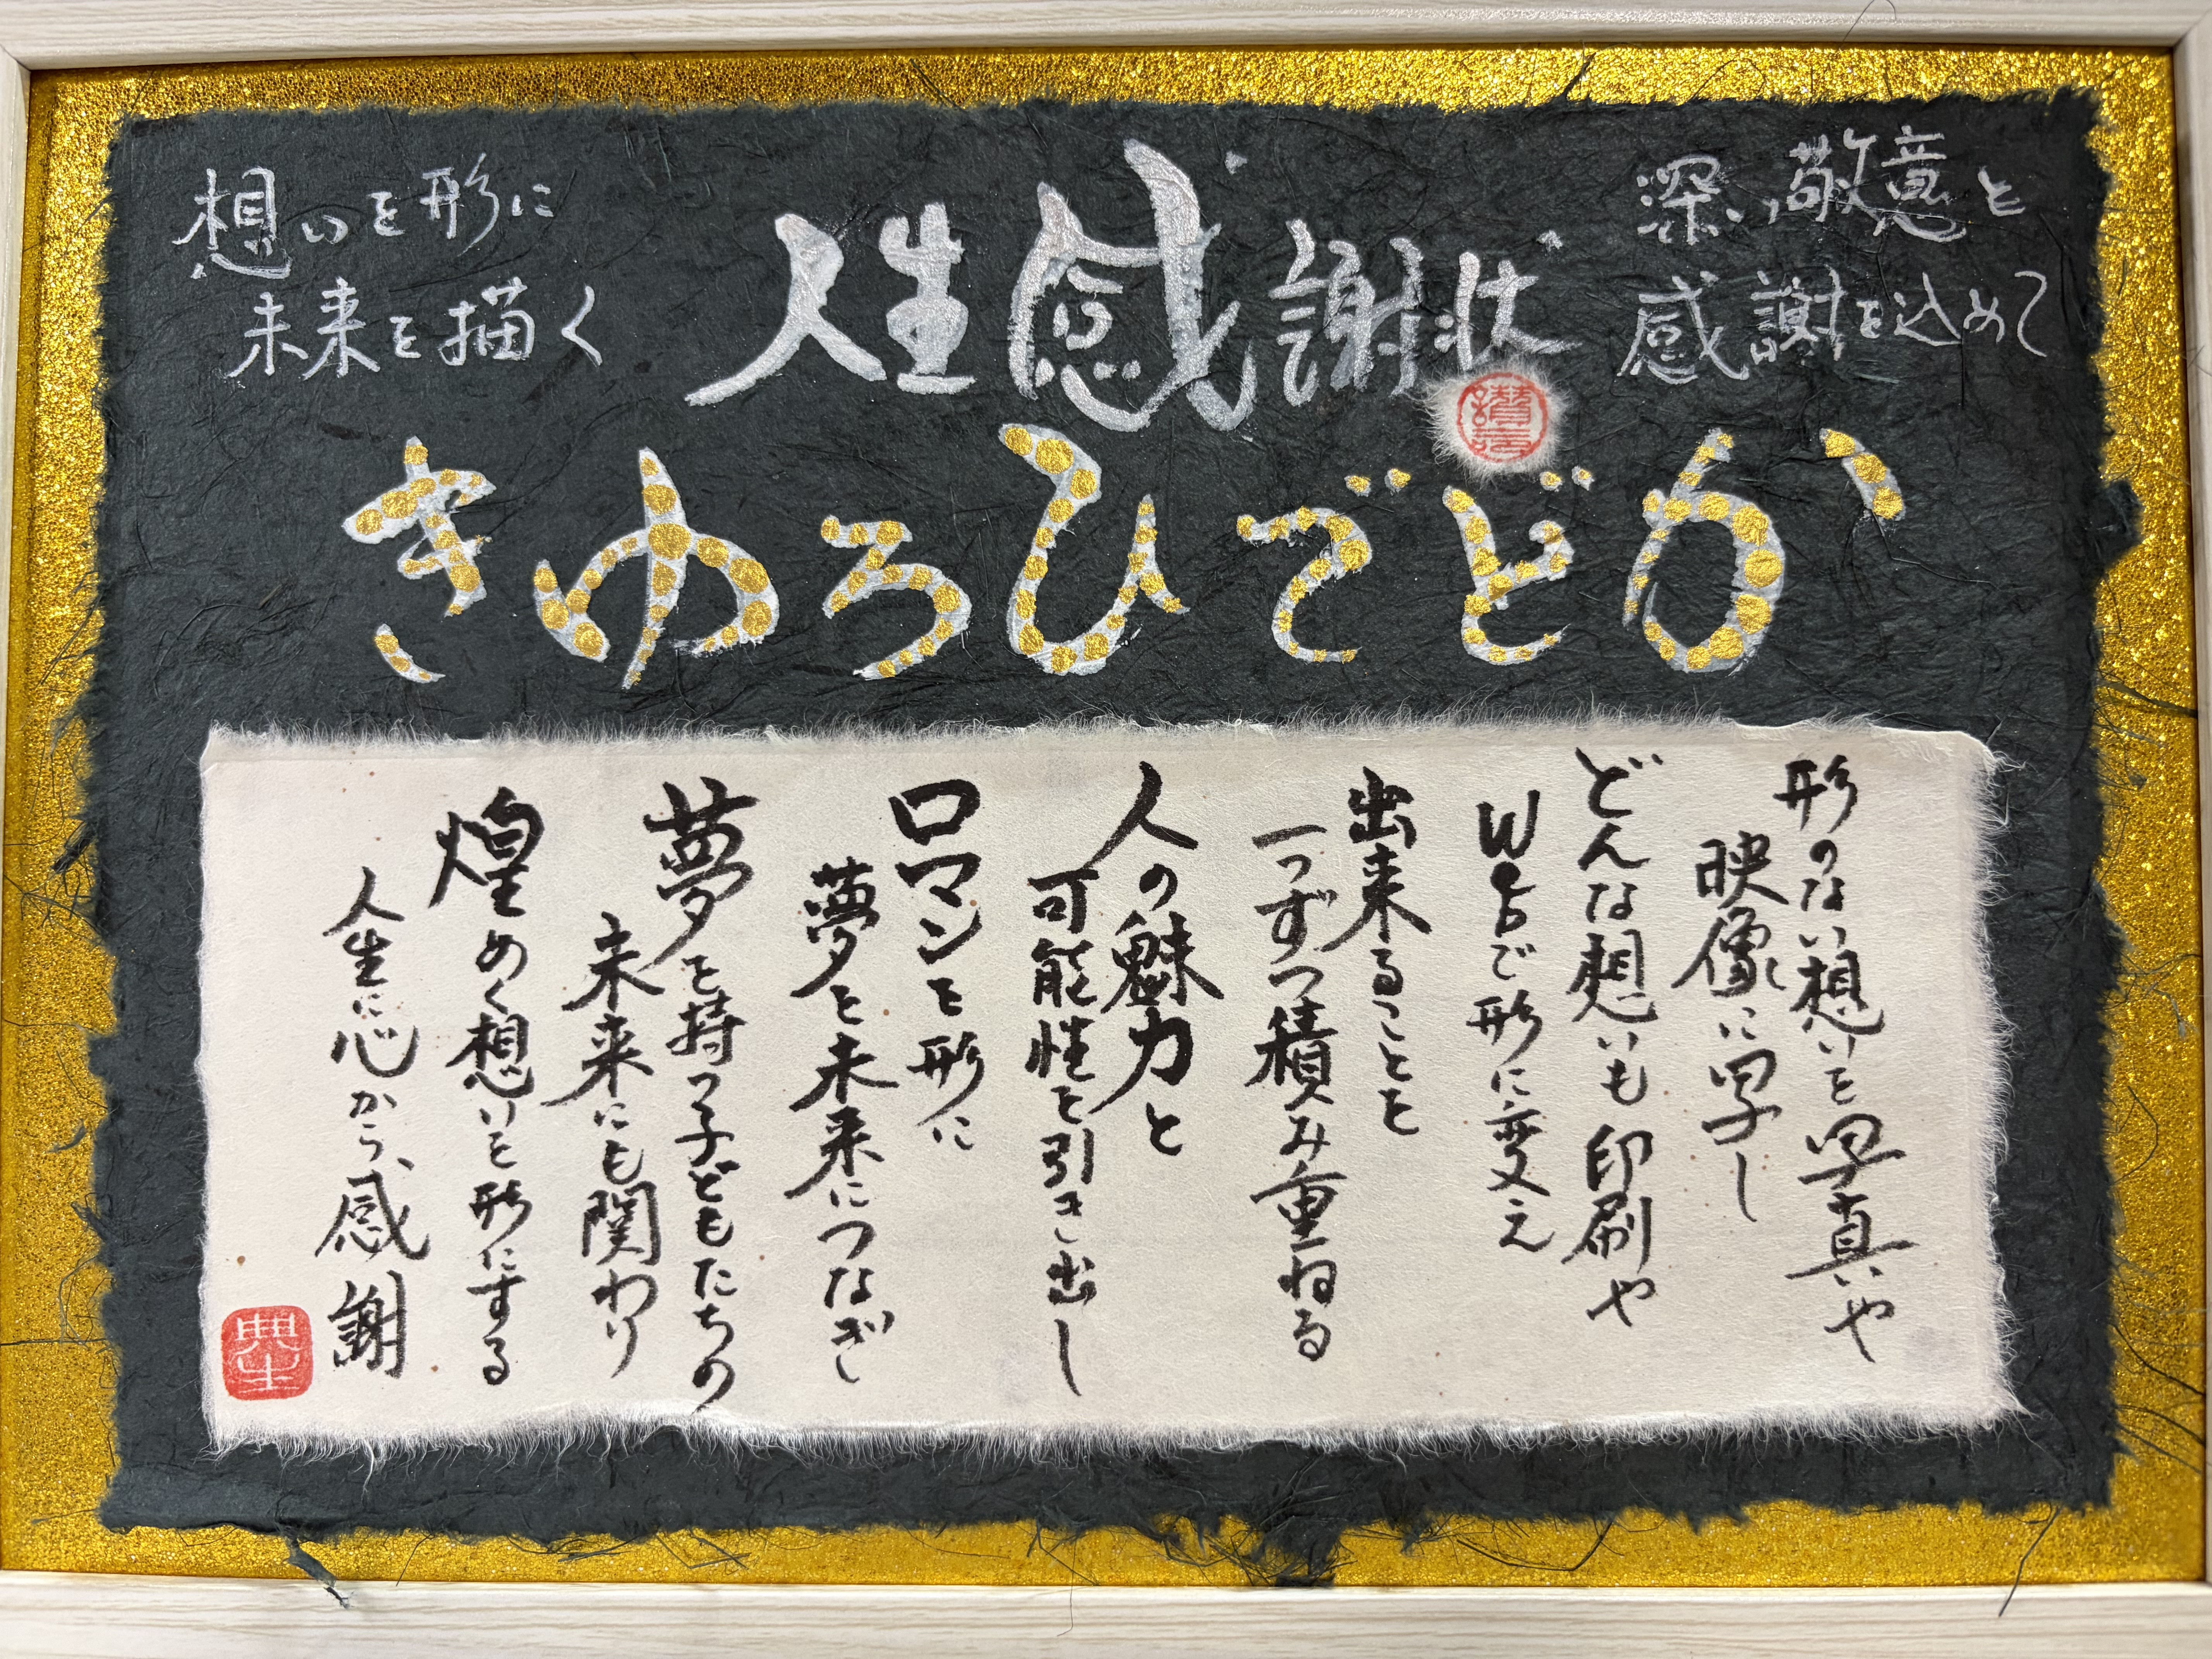 深い敬意と
感謝を込めて
人生感謝状
想いを形に
未来を描く
かどでひろゆき
形のない想いを写真や
映像に写し
どんな想いも印刷や
Webで形に変え
出来ることを
一つずつ積み重ねる
人の魅力と
可能性を引き出し
ロマンを形に
夢を未来につなぎ
夢を持つ子どもたちの
未来にも関わり
煌めく想いを形にする
人生に心から感謝
典生